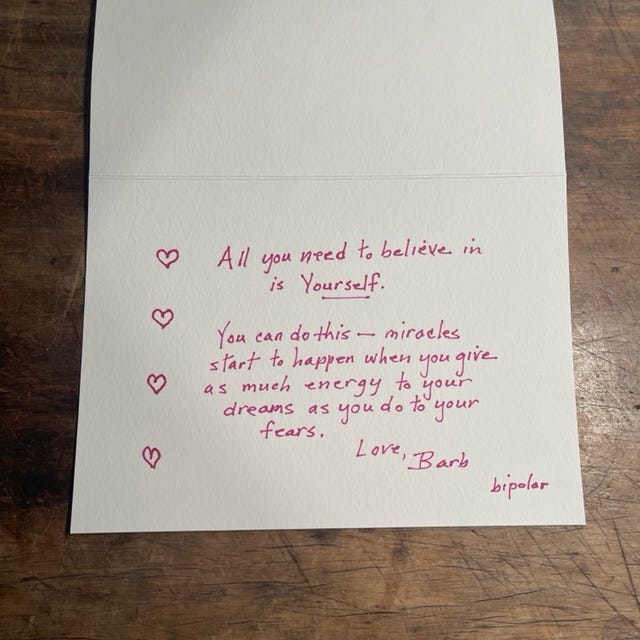 All you need to believe in
is Yourself.
You can do this — miracles
start to happen when you give
as much energy to your
dreams as you do to your
fears.
Love, Barb
bipolar